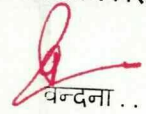 वन्दना . .